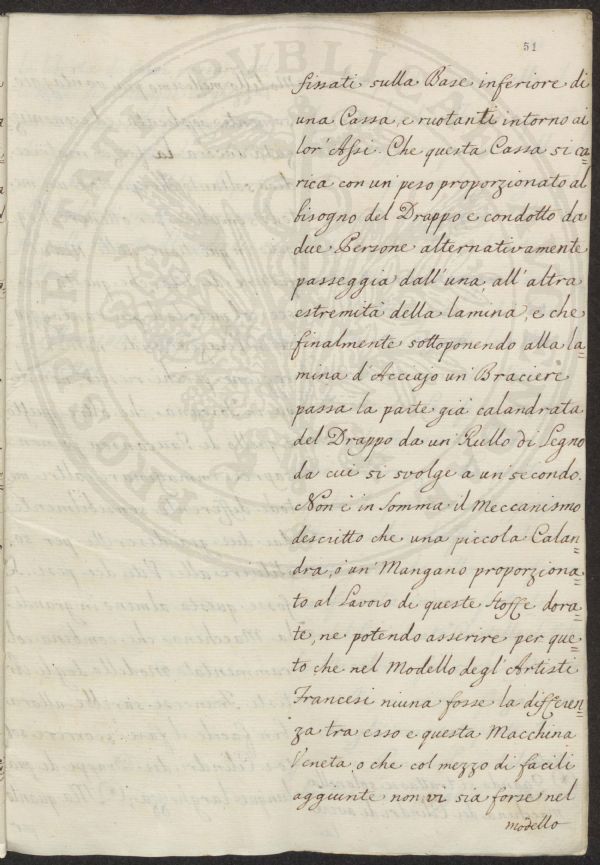 51
fissati sulla Base inferiore di
una Cassa, e ruotanti intorno ai
lor' Assi. Che questa Cassa si ca=
rica con un' peso proporzionato al
bisogno del Drappo e condotto da
due Persone alternativamente
passeggia dall'una, all'altra
estremità della lamina, e che
finalmente sottoponendo alla la=
mina d'Acciajo un' Braciere
passa la parte già calandrata
del Drappo da un' Rullo di Legno
da cui si svolge a un' secondo.
Non è in somma il Meccanismo
descritto che una piccola Calan=
dra, o un' Mangano proporziona=
to al Lavoro di queste stoffe dora=
te, ne potendo asserire per que=
to che nel Modello degl'Artisti
Francesi niuna fosse la differen=
za tra esso e questa Macchina
Veneta, o che col mezzo di facili
aggiunte non vi sia forse nel
modello